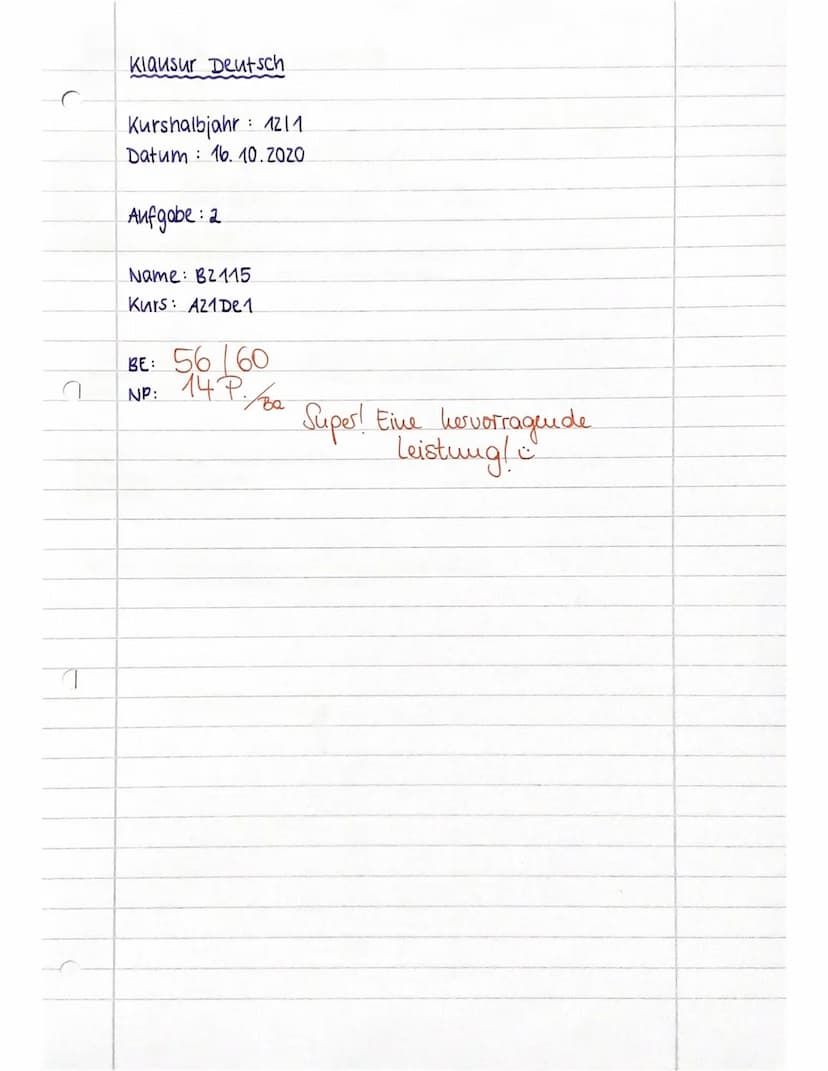 Klausur Deutsch
Kurshalbjahr : 12/1
Datum : 16.10.2020
Aufgabe : 2
Name: BZ115
Kurs: AZ1De1
BE: 56/60
NP: 14 P. /Ba
Super! Eine hervorragende
Leistung! :)